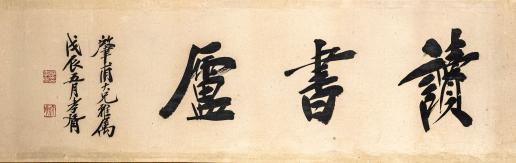 讀書廬
肇甫大兄雅屬
戊辰五月孝胥